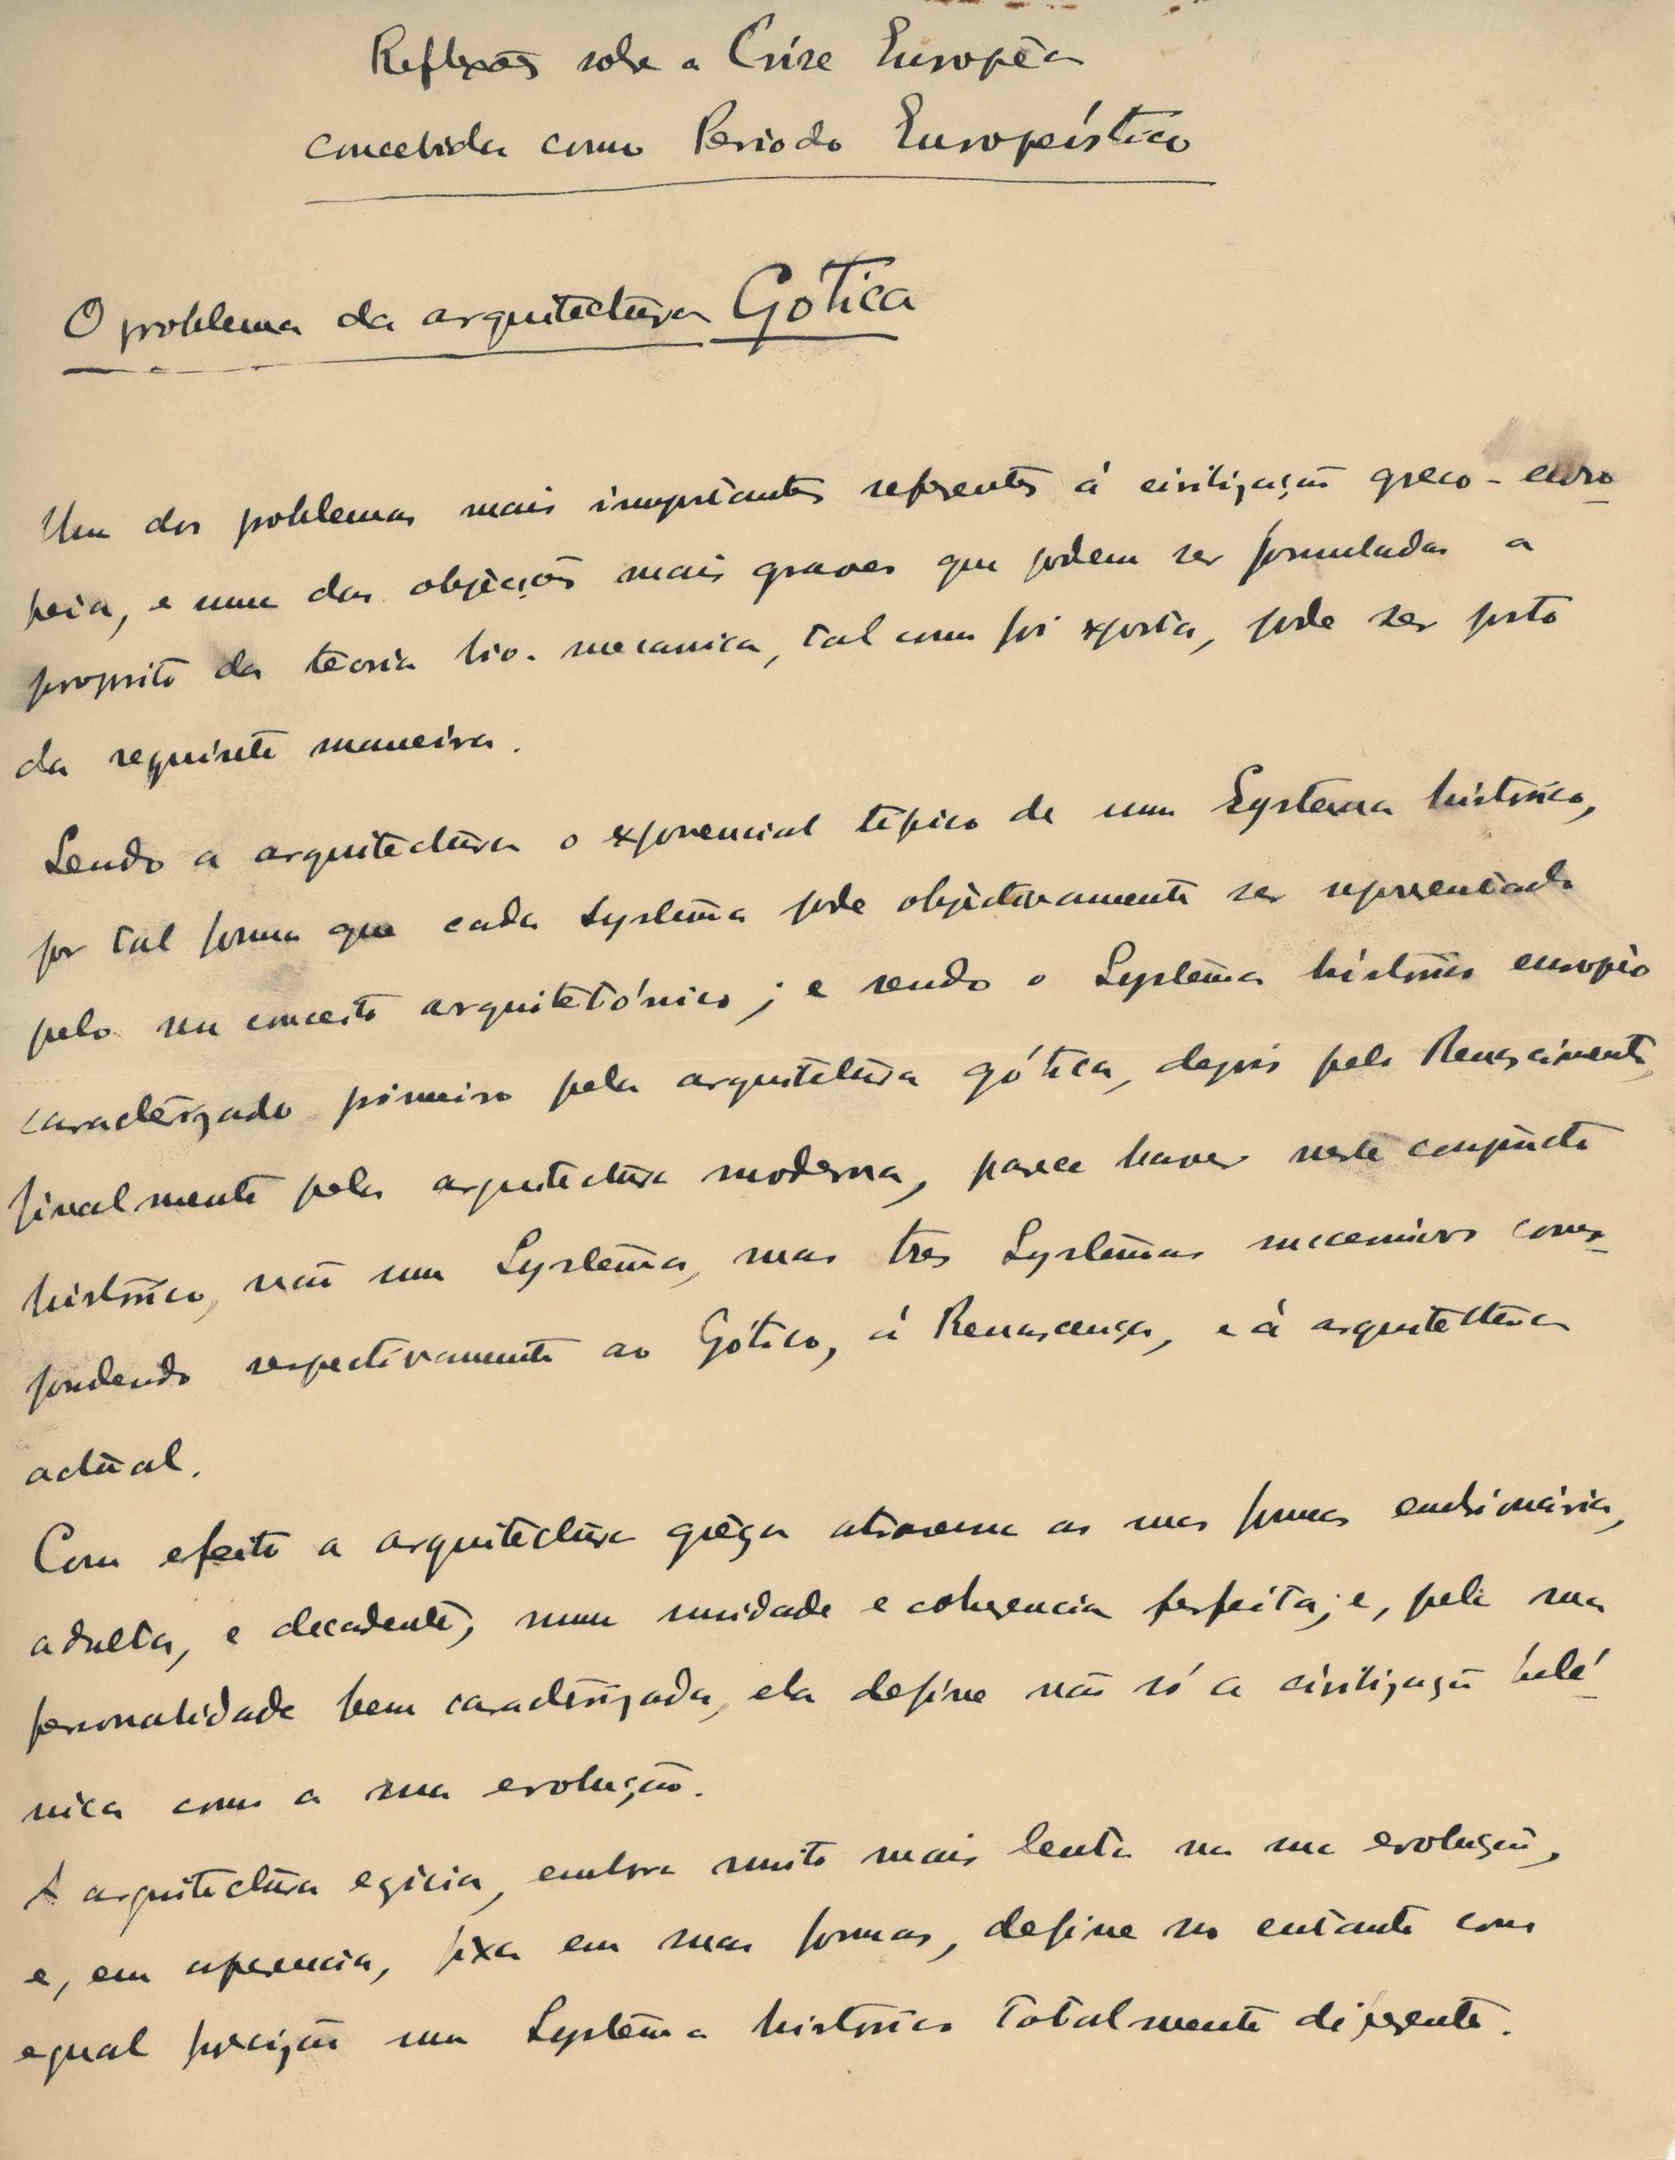 Reflexões sobre a Crise Europêa
concebida como Periodo Europeístico
O problema da arquitectura Gótica
Um dos problemas mais importantes referentes á civilização greco-euro
peia, e uma das objeções mais graves que podem ser formuladas a
proposito da teoria bio-mecanica, tal como foi exposta, pode ser posto
da seguinte maneira.
Sendo a arquitectura o exponencial tipico de um Systema histórico,
por tal forma que cada Systema pode objectivamente ser representado
pelo seu conceito arquitetónico; e sendo o Systema histórico europêo
caracterizado primeiro pela arquitetura gótica, depois pelo Renascimento,
finalmente pela arquitectura moderna, parece haver neste conjuncto
histórico, não um Systema, mas tres Systemas sucessivos corres
pondendo respectivamente ao Gótico, á Renascença, e á arquitectura
actual.
Com efeito a arquitectura grega atravessa as suas formas embrionária,
adulta, e decadente, numa unidade e coherencia perfeita; e, pela sua
personalidade bem caracterizada, ela define não só a civilização helé
nica como a sua evolução.
A arquitectura egicia, embora muito mais lenta na sua evolução,
e, em aparencia, fixa em suas formas, define no entanto com
egual precizão um Systema historico totalmente diferente.